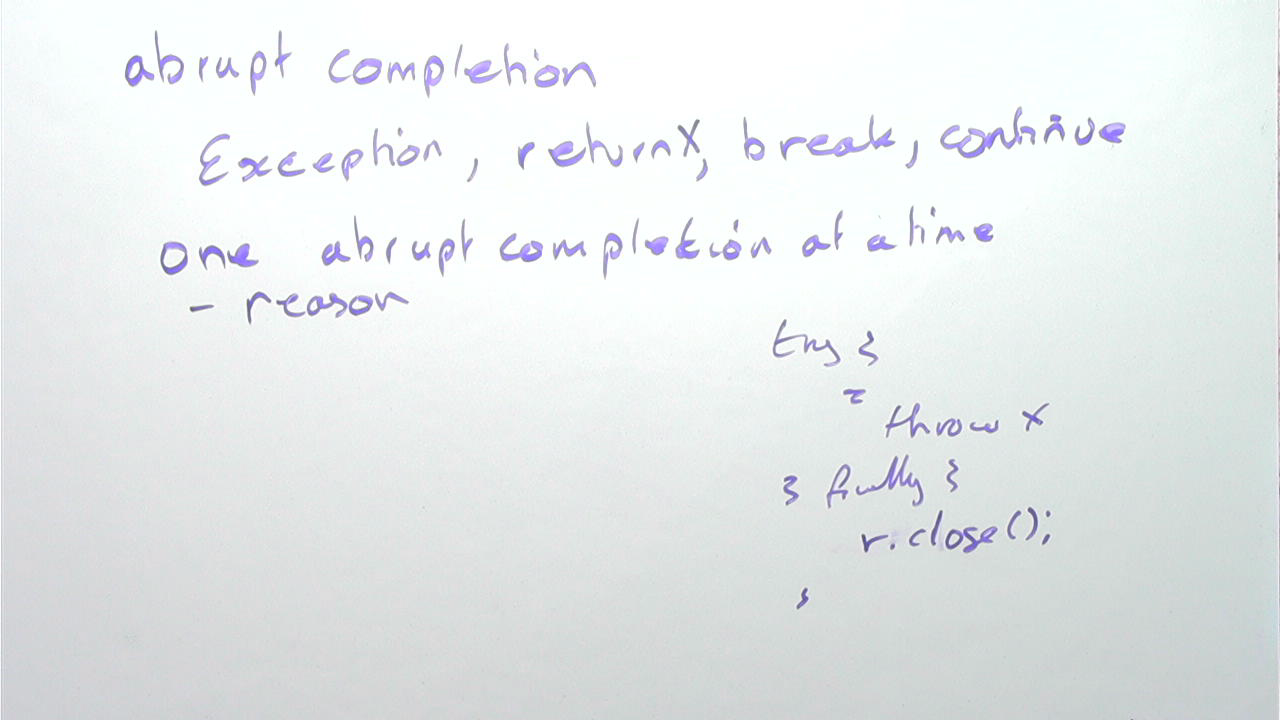 abrupt completion
Exception, return X, break, continue
one abrupt completion at a time
- reason
try {
throw x
} finally {
r.close();
}